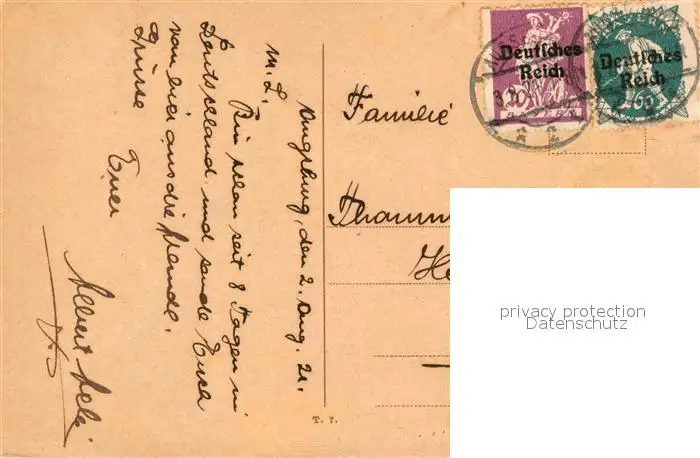 Augsburg, den 2. Aug. 21.
M. L.
Bin schon seit 8 Tagen in
Deutschland und sende Euch
von hier aus die
Grüsse
Euer
Albert
Familie
Deutsches
Reich
BAYERN
Deutsches
Reich
60
T. 7.
privacy protection
Datenschutz